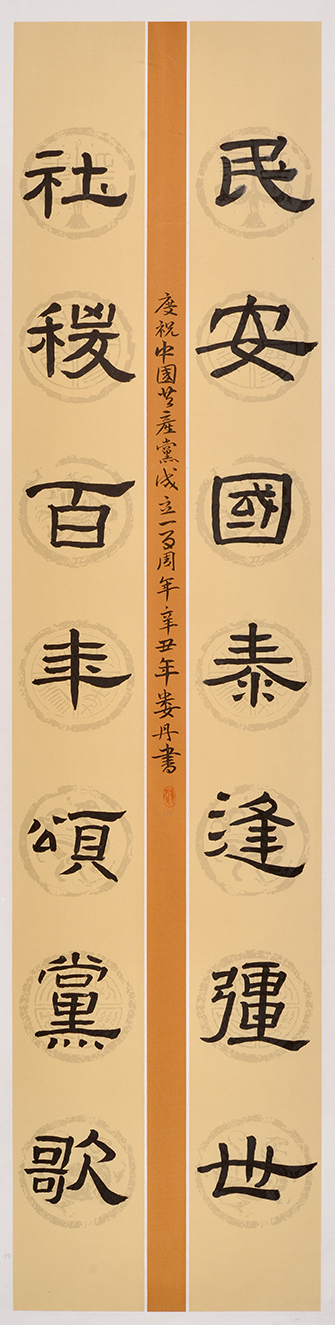 民安國泰逢彊世
社稷百年頌黨歌
慶祝中國共產黨成立一百周年辛丑年娄丹書